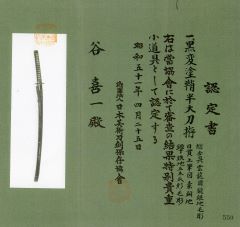 認定書
一、黒変塗鞘半太刀拵
右は當協會に於て審査の結果特別貴重
小道具として認定する
昭和五十一年四月二十五日
財團法人日本美術刀剣保存協會
谷 喜一殿
550